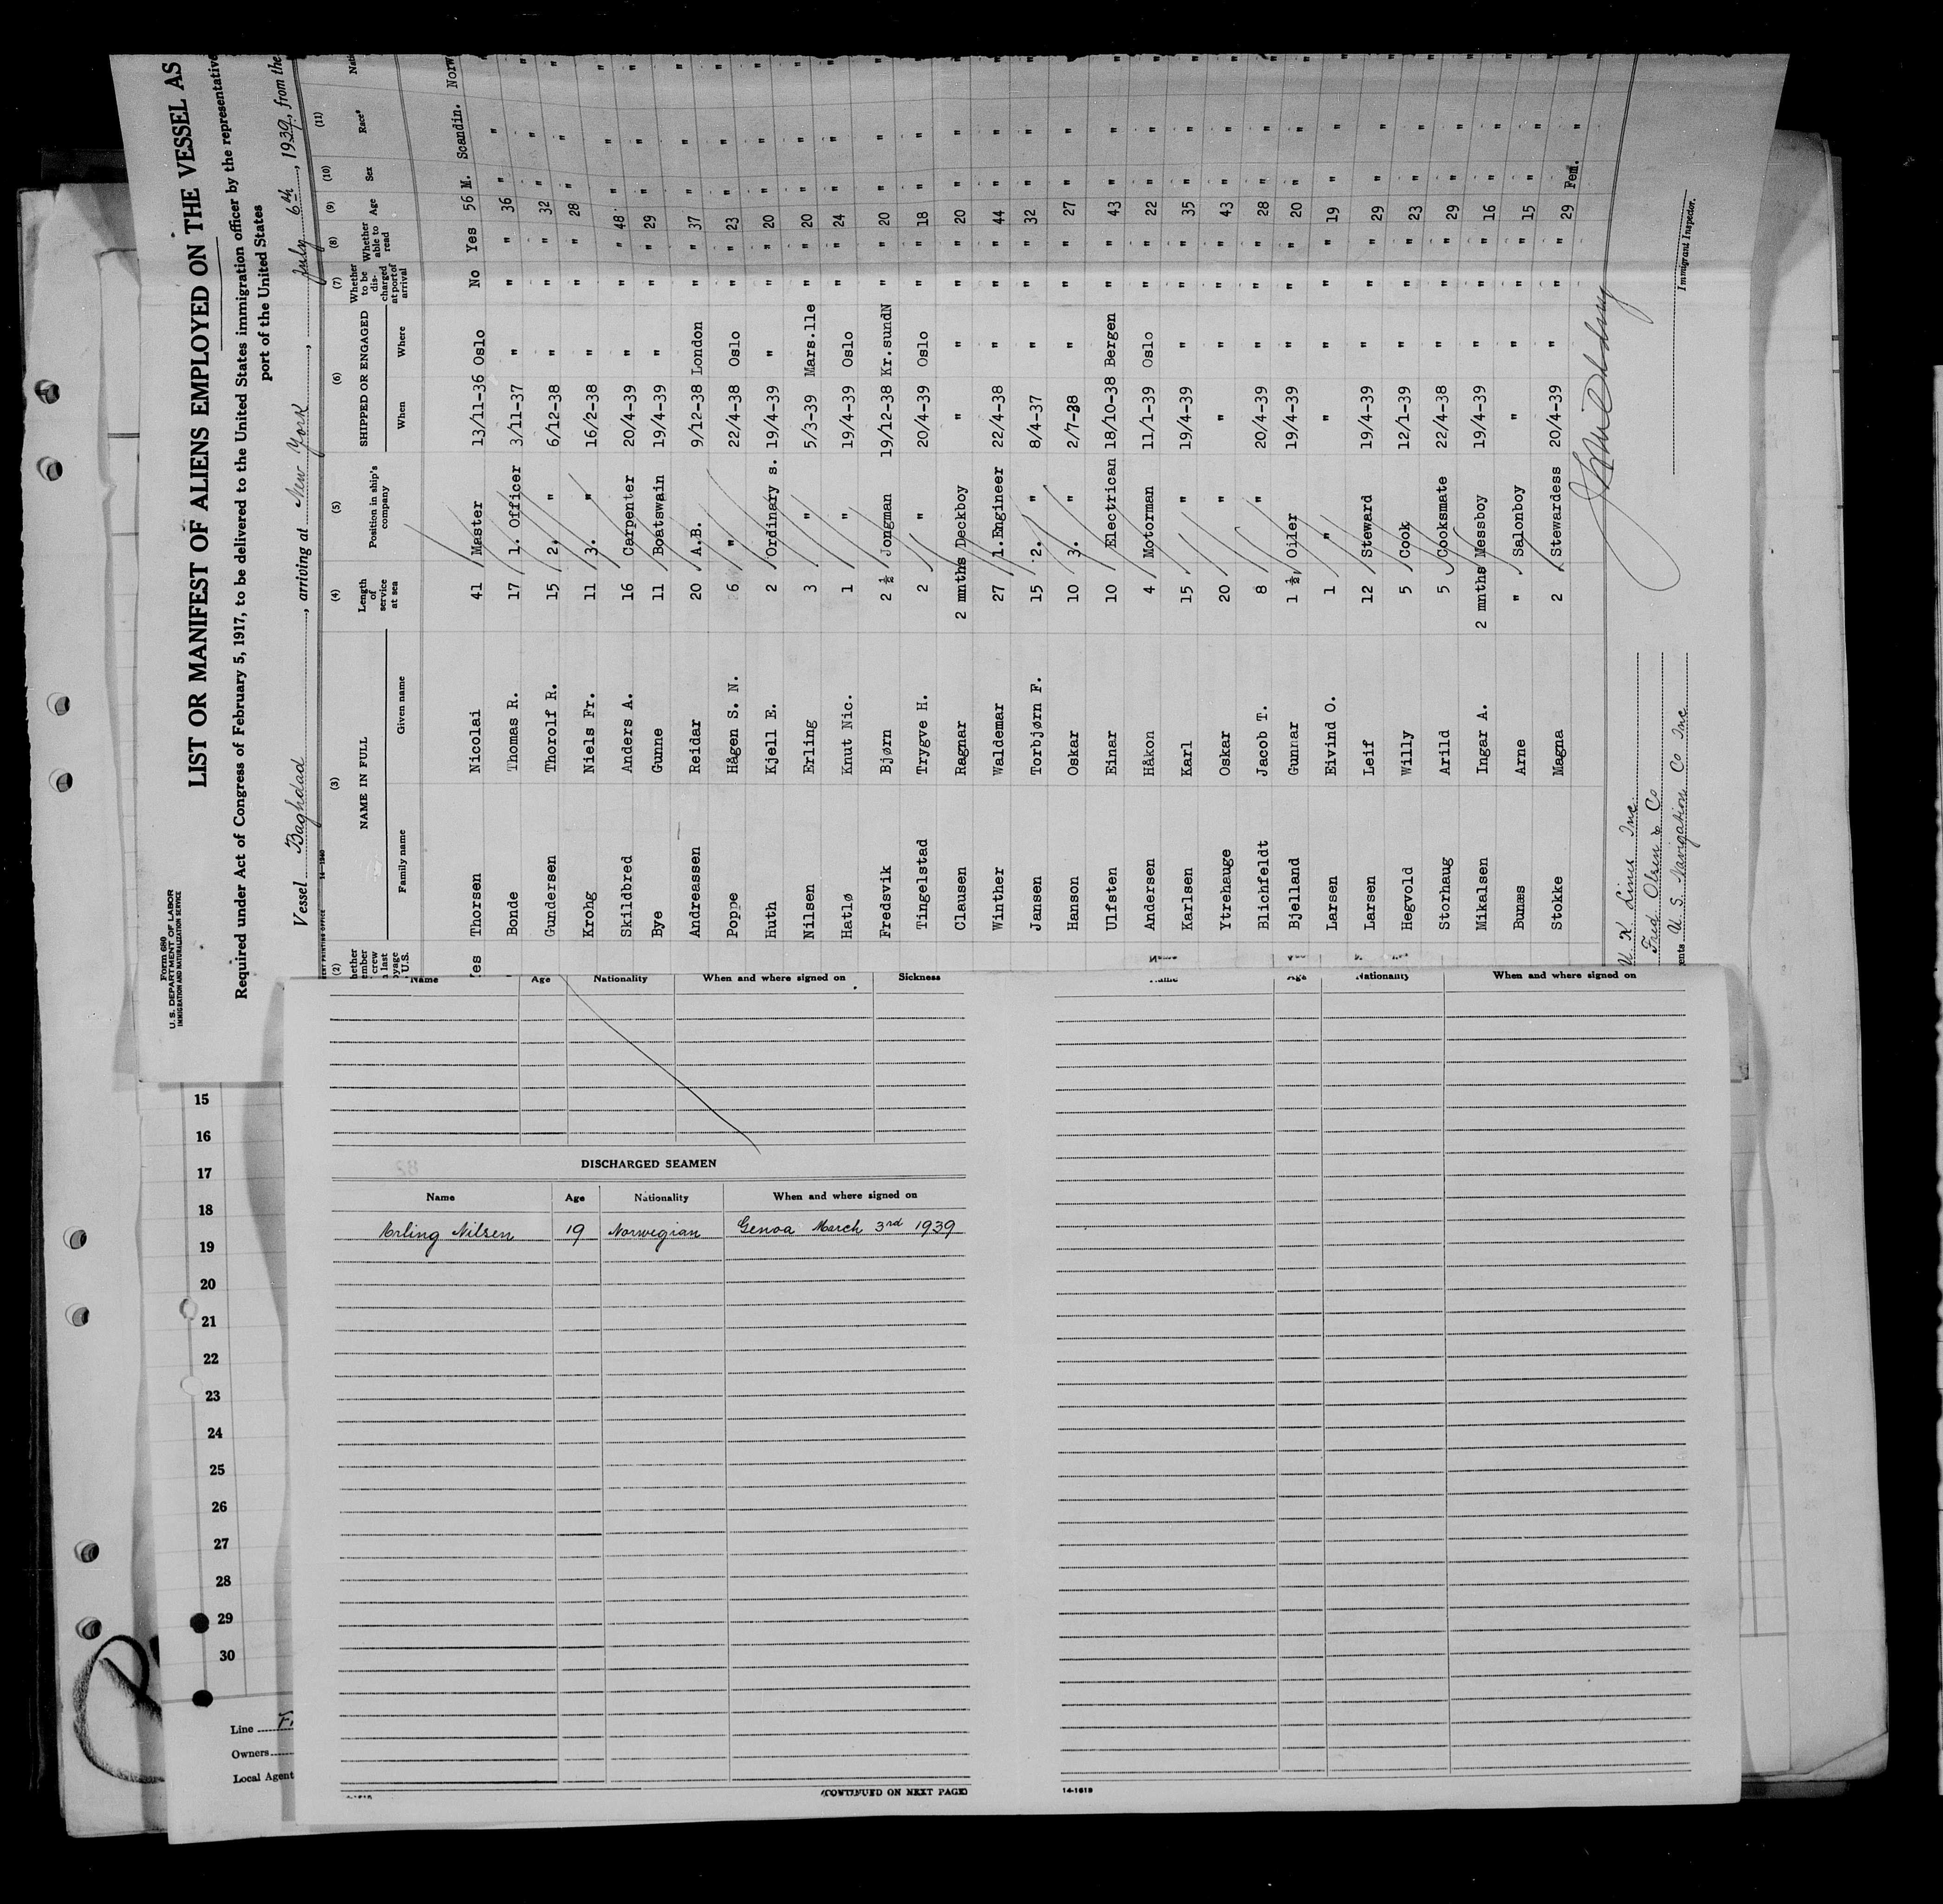 Form 680
U. S. DEPARTMENT OF LABOR
IMMIGRATION AND NATURALIZATION SERVICE
LIST OR MANIFEST OF ALIENS EMPLOYED ON THE VESSEL AS
Required under Act of Congress of February 5, 1917, to be delivered to the United States immigration officer by the representative
port of the United States
Vessel Baghdad, arriving at New York, July 6th, 1939, from the
(2) (3) (4) (5) (6) (7) (8) (9) (10) (11)
NAME IN FULL Length of service at sea Position in ship's company SHIPPED OR ENGAGED Whether to be discharged at port of arrival Whether able to read Age Sex Race*
Family name Given name When Where
Thorsen Nicolai 41 Master 13/11-36 Oslo No Yes 56 M. Scandin. Norw
Bonde Thomas R. 17 1. Officer 3/11-37 " " " 36 " " "
Gundersen Thorolf R. 15 2. " 6/12-38 " " " 32 " " "
Krohg Niels Fr. 11 3. " 16/2-38 " " " 28 " " "
Skildbred Anders A. 16 Carpenter 20/4-39 " " " 48 " " "
Bye Gunne 11 Boatswain 19/4-39 " " " 29 " " "
Andreassen Reidar 20 A.B. 9/12-38 London " " 37 " " "
Poppe Hågen S. N. 6 " 22/4-38 Oslo " " 23 " " "
Huth Kjell E. 2 Ordinary s. 19/4-39 " " " 20 " " "
Nilsen Erling 3 " 5/3-39 Mars.lle " " 20 " " "
Hatlø Knut Nic. 1 " 19/4-39 Oslo " " 24 " " "
Fredsvik Bjørn 2 ½ Jongman 19/12-38 Kr.sundN " " 20 " " "
Tingelstad Trygve H. 2 " 20/4-39 Oslo " " 18 " " "
Clausen Ragnar 2 mnths Deckboy " " " " 20 " " "
Winther Waldemar 27 1.Engineer 22/4-38 " " " 44 " " "
Jansen Torbjørn F. 15 2. " 8/4-37 " " " 32 " " "
Hanson Oskar 10 3. " 2/7-38 " " " 27 " " "
Ulfsten Einar 10 Electrican 18/10-38 Bergen " " 43 " " "
Andersen Håkon 4 Motorman 11/1-39 Oslo " " 22 " " "
Karlsen Karl 15 " 19/4-39 " " " 35 " " "
Ytrehauge Oskar 20 " " " " " 43 " " "
Blichfeldt Jacob T. 8 " 20/4-39 " " " 28 " " "
Bjelland Gunnar 1 ½ Oiler 19/4-39 " " " 20 " " "
Larsen Eivind O. 1 " " " " " 19 " " "
Larsen Leif 12 Steward 19/4-39 " " " 29 " " "
Hegvold Willy 5 Cook 12/1-39 " " " 23 " " "
Storhaug Arild 5 Cooksmate 22/4-38 " " " 29 " " "
Mikalsen Ingar A. 2 mnths Messboy 19/4-39 " " " 16 " " "
Bunæs Arne " Salonboy " " " " 15 " " "
Stokke Magna 2 Stewardess 20/4-39 " " " 29 Fem. " "
Immigrant Inspector.
Fred. Olsen & Co
U. S. Navigation Co Inc
Name Age Nationality When and where signed on Sickness
DISCHARGED SEAMEN
Name Age Nationality When and where signed on
Erling Nilsen 19 Norwegian Genoa March 3rd 1939
(CONTINUED ON NEXT PAGE)
Name Age Nationality When and where signed on
14-1618
15
16
17
18
19
20
21
22
23
24
25
26
27
28
29
30
Line
Owners
Local Agent